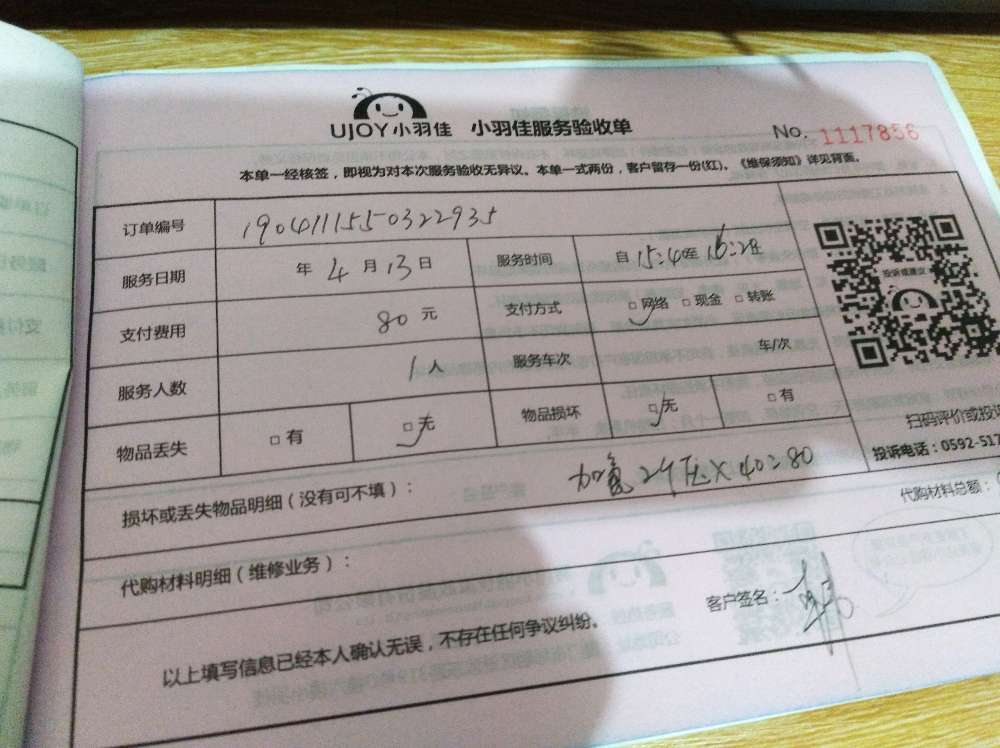 UJOY小羽佳 小羽佳服务验收单 No. 1117856
本单一经核签，即视为对本次服务验收无异议。本单一式两份，客户留存一份(红)。《维保须知》详见背面。
订单编号 1904111550322935
服务日期 年 4 月 13 日 服务时间 自 15:40 至 16:28
支付费用 80 元 支付方式 □网络 □现金 □转账
服务人数 1 人 服务车次 车/次
物品丢失 □有 □无 物品损坏 □无 □有
投诉或建议
扫码评价或投
投诉电话：0592-517
损坏或丢失物品明细（没有可不填）：
加氟 2个压×40=80
代购材料总额：
代购材料明细（维修业务）：
客户签名：
以上填写信息已经本人确认无误，不存在任何争议纠纷。